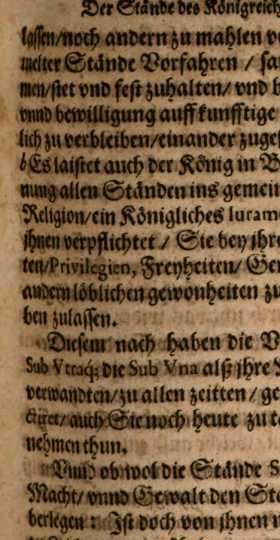 Der Stände des Königreich
lassen/noch andern zu mahlen
melter Stände Vorfahren / sa
men/stet vnd fest zuhalten/ vnd b
vnnd bewilligung auff kunfftige
lich zu verbleiben/einander zuges
Es laistet auch der König in B
nung allen Ständen ins gemein
Religion/ein Königliches Iuram
ihnen verpflichtet / Sie bey ihre
ten/Privilegien, Freyheiten/ Ger
andern löblichen gewonheiten zu
ben zulassen.
Diesem nach haben die V
Sub Vtraq; die Sub Vna alß ihre
verwandten/zu allen zeitten / ge
auch Sie noch heute zu
nehmen thun.
Vnnd ob wol die Stände S
Macht/ vnnd Gewalt den Stä
berlegen: Ist doch von ihnen